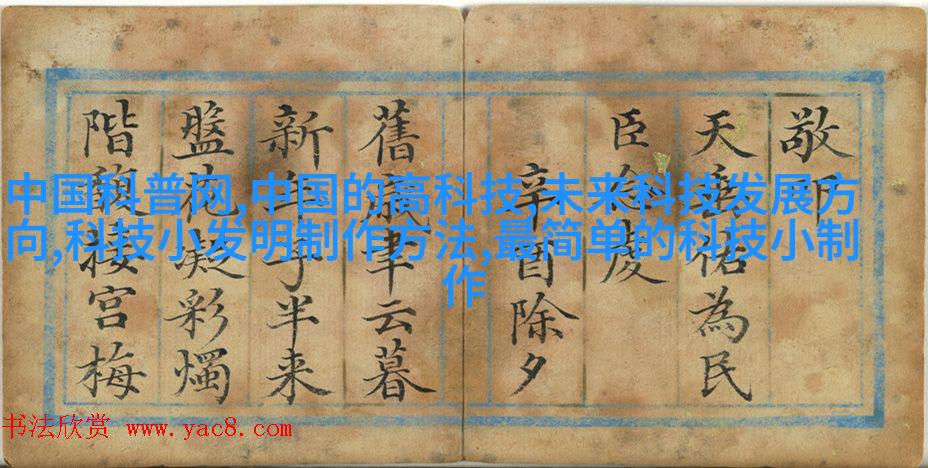 中国科普网,中国的高科技,未来科技发展方
向,科技小发明制作方法,最简单的科技小制
作
敬叩
天祐為民
臣
辛酉除夕
舊歲聿云暮
新年子半来
盤花凝彩燭
階馥接宮梅
书法欣赏 www.yac8.com